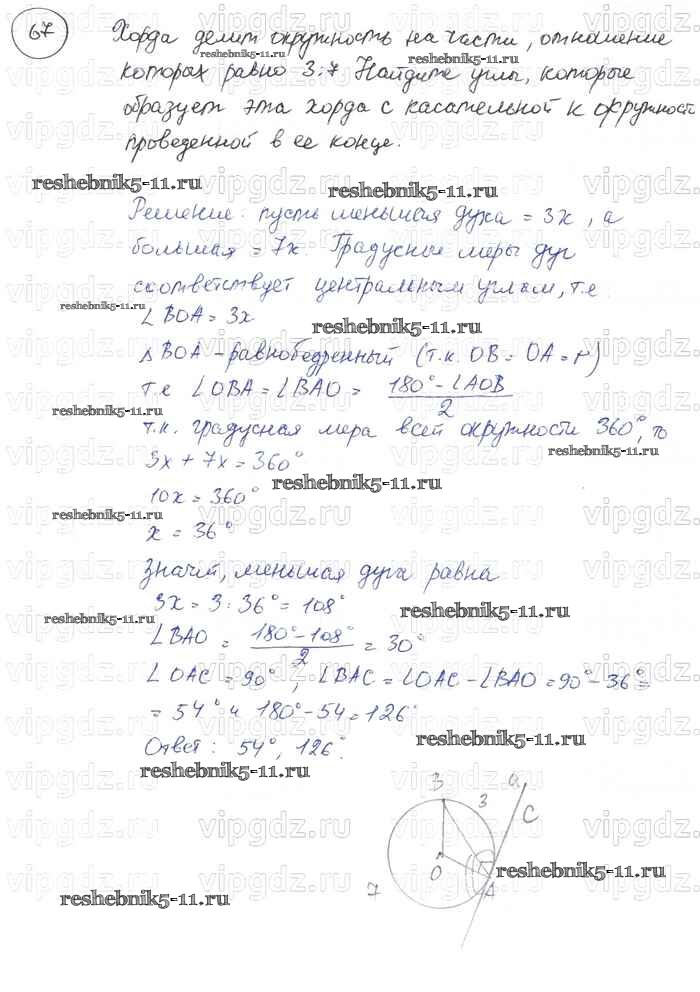 67
Хорда делит окружность на части, отношение
которых равно 3:7 Найдите углы, которые
образует эта хорда с касательной к окружности
проведенной в ее конце.
Решение: пусть меньшая дуга = 3x, а
большая = 7x. Градусные меры дуг
соответствует центральным углам, т.е.
∠BOA = 3x
△BOA - равнобедренный (т.к. OB = OA = r)
т.е ∠OBA = ∠BAO = (180° - ∠AOB)/2
т.к. градусная мера всей окружности 360°, то
3x + 7x = 360°
10x = 360°
x = 36°
Значит, меньшая дуга равна
3x = 3·36° = 108°
∠BAO = (180° - 108°)/2 = 30°
∠OAC = 90°, ∠BAC = ∠OAC - ∠BAO = 90° - 36° =
= 54° и 180° - 54 = 126°
Ответ: 54°, 126°.
B 3 a
C
O
7 A
reshebnik5-11.ru
vipgdz.ru